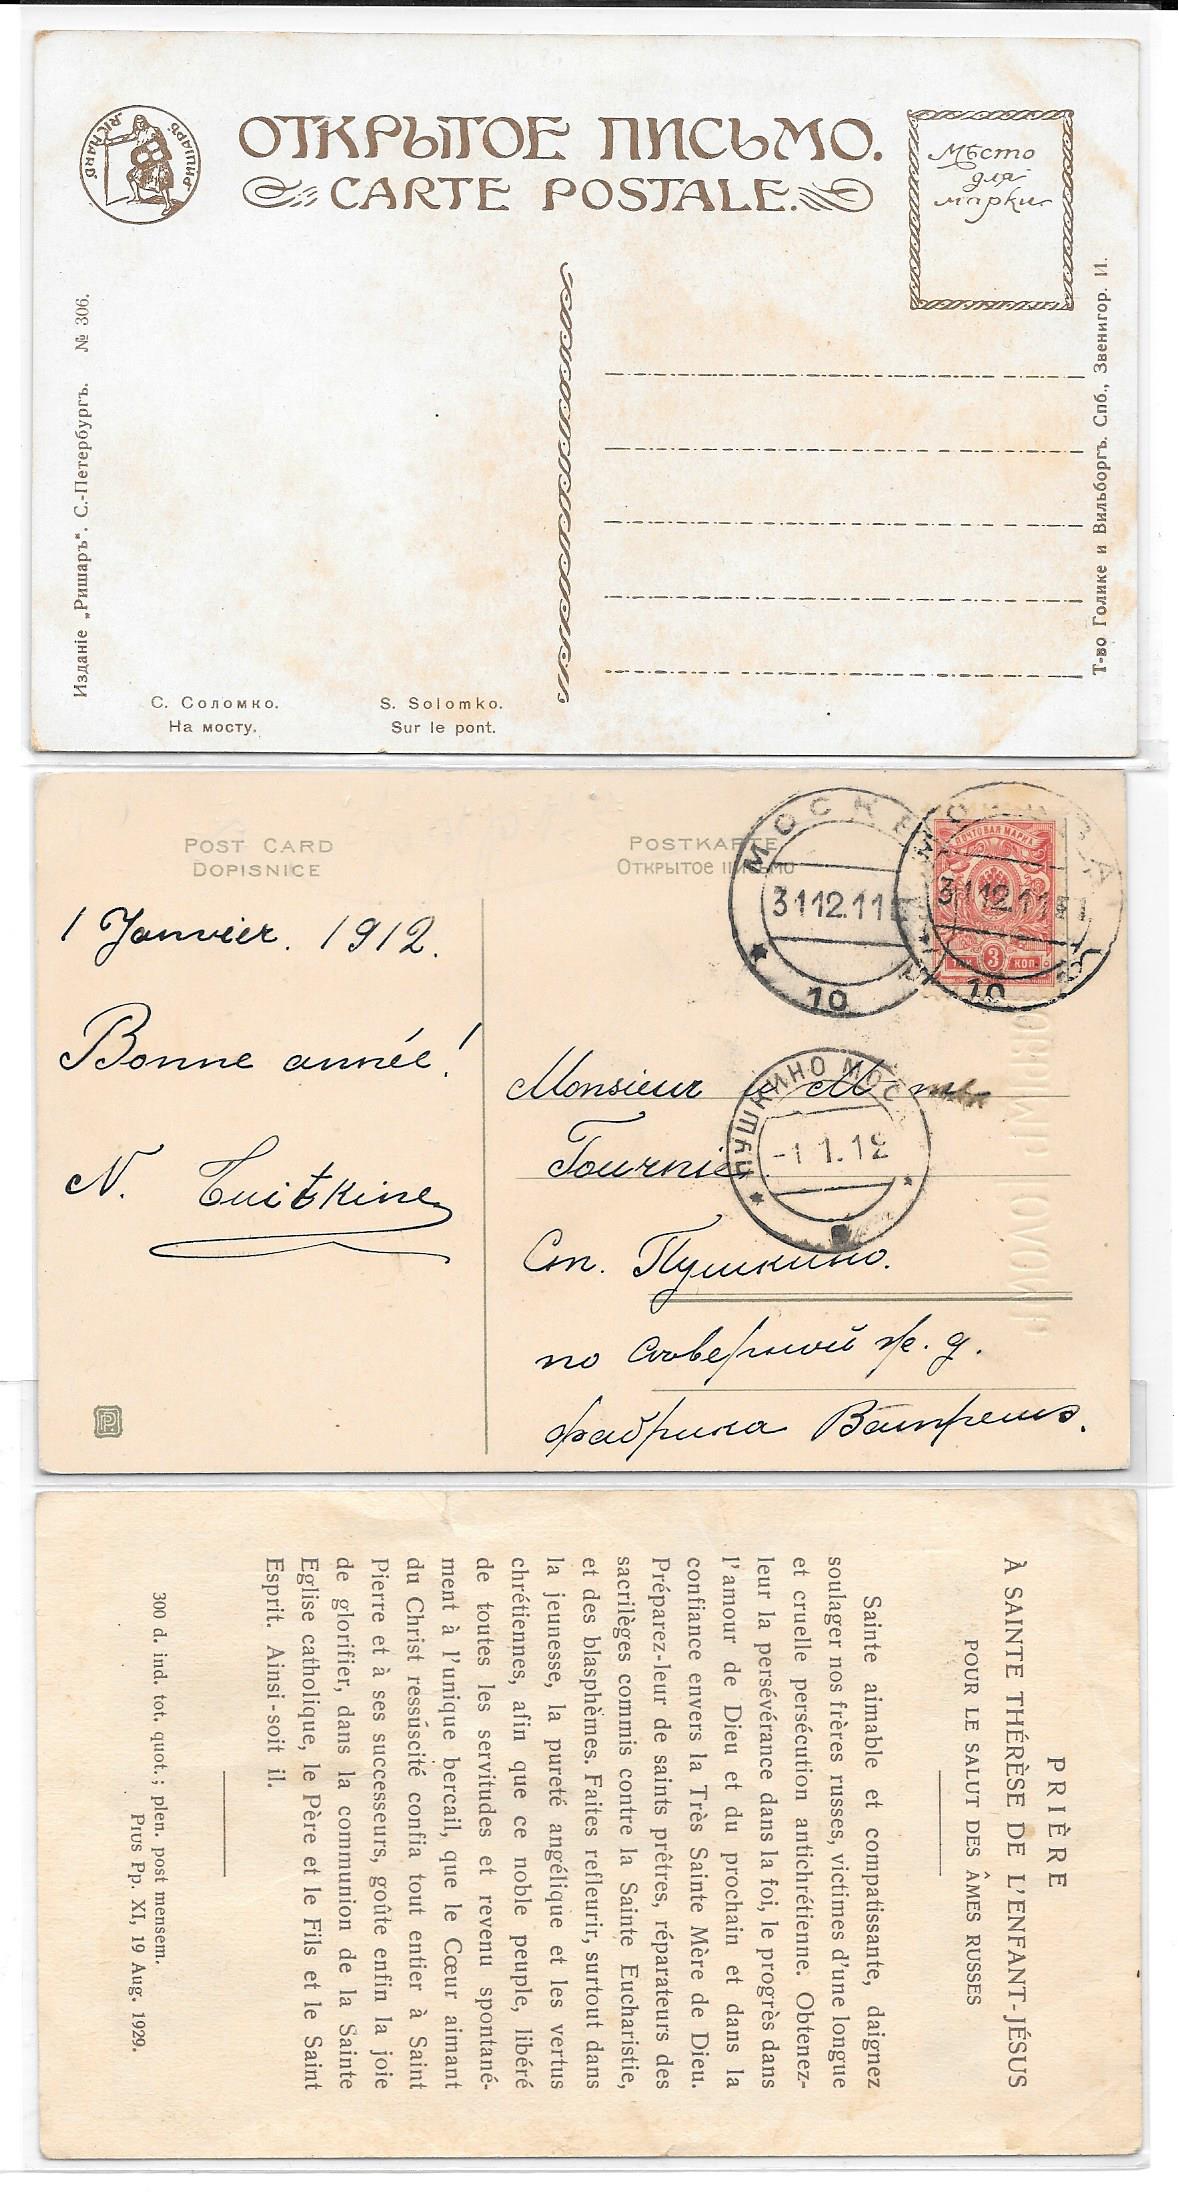 РИШАРЪ
"RICHARD"
ОТКРЫТОЕ ПИСЬМО.
CARTE POSTALE.
Мѣсто
для
марки
Изданіе „Ришаръ“. С.-Петербургъ. № 306.
Т-во Голике и Вильборгъ. Спб., Звенигор. 11.
С. Соломко.
На мосту.
S. Solomko.
Sur le pont.
POST CARD
DOPISNICE
POSTKARTE
Открытое письмо
МОСКВА
31 12.11
10
МОСКВА
31 12.11
10
ПОЧТОВАЯ МАРКА
3 КОП.
1 Janvier. 1912.
Bonne année!
N.
ПУШКИНО МОС
-1 1.12
Monsieur
Tournier
Ст. Пушкино.
по Сѣверной ж. д.
фабрика
P
PRIÈRE
À SAINTE THÉRÈSE DE L'ENFANT-JÉSUS
POUR LE SALUT DES ÂMES RUSSES
Sainte aimable et compatissante, daignez
soulager nos frères russes, victimes d'une longue
et cruelle persécution antichrétienne. Obtenez-
leur la persévérance dans la foi, le progrès dans
l'amour de Dieu et du prochain et dans la
confiance envers la Très Sainte Mère de Dieu.
Préparez-leur de saints prêtres, réparateurs des
sacrilèges commis contre la Sainte Eucharistie,
et des blasphèmes. Faites refleurir, surtout dans
la jeunesse, la pureté angélique et les vertus
chrétiennes, afin que ce noble peuple, libéré
de toutes les servitudes et revenu spontané-
ment à l'unique bercail, que le Cœur aimant
du Christ ressúscité confia tout entier à Saint
Pierre et à ses successeurs, goûte enfin la joie
de glorifier, dans la communion de la Sainte
Eglise catholique, le Père et le Fils et le Saint
Esprit. Ainsi-soit il.
300 d. ind. tot. quot.; plen. post mensem.
Pius Pp. XI, 19 Aug. 1929.